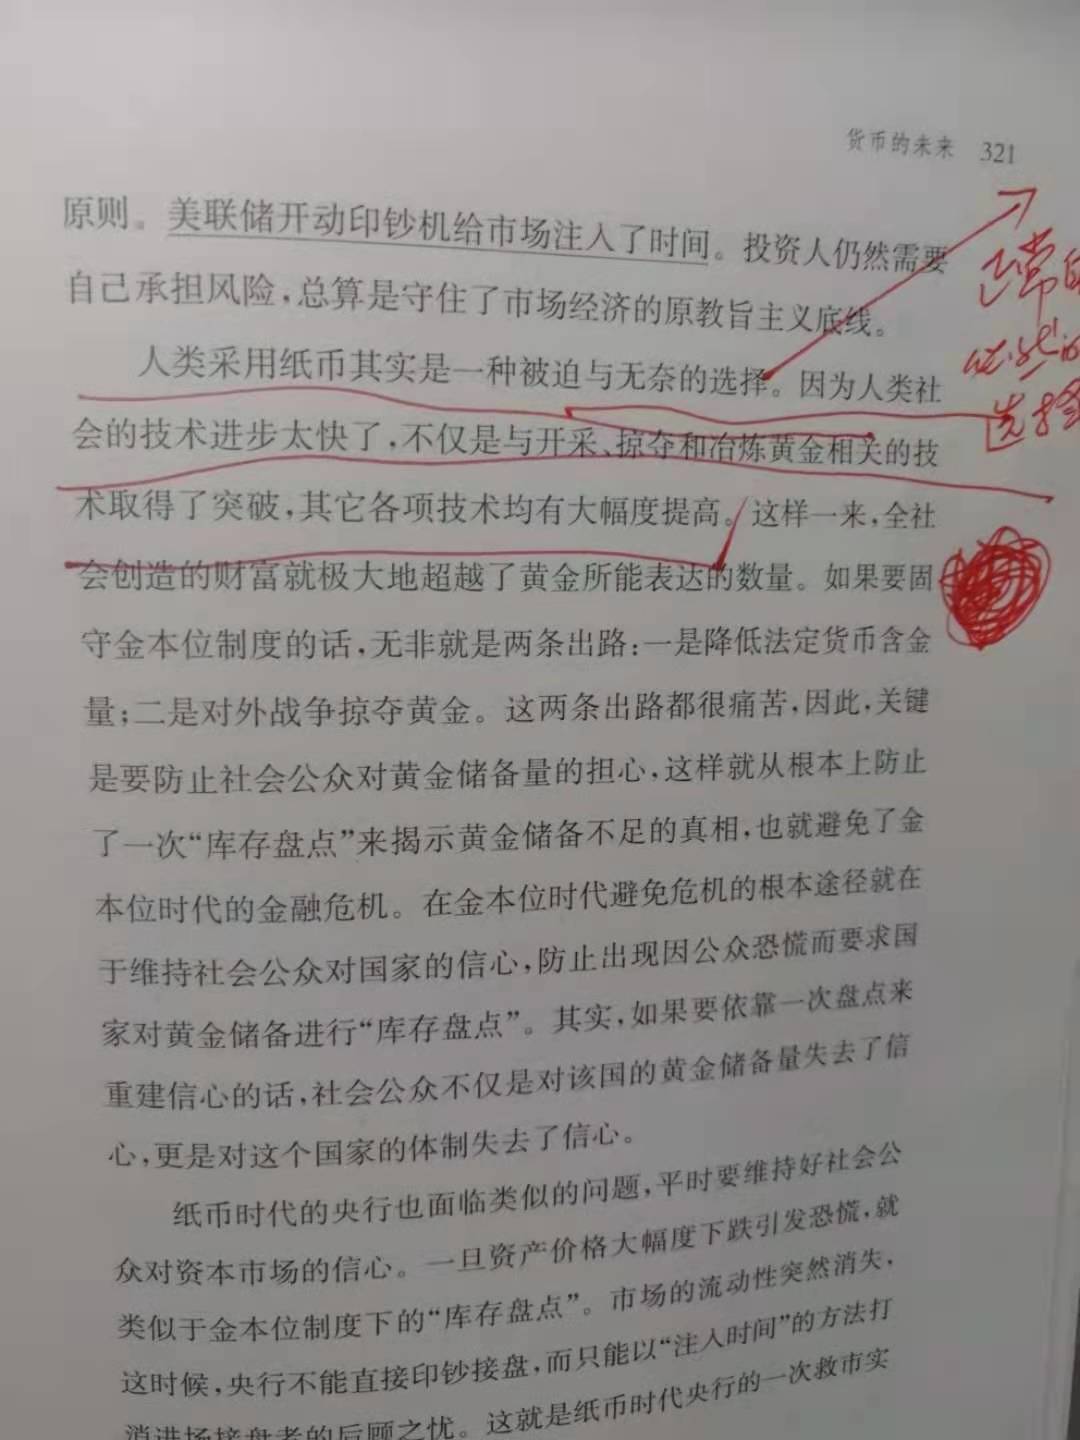 货币的未来 321
原则。美联储开动印钞机给市场注入了时间。投资人仍然需要
自己承担风险，总算是守住了市场经济的原教旨主义底线。
正常的
必然的
选择
人类采用纸币其实是一种被迫与无奈的选择。因为人类社
会的技术进步太快了，不仅是与开采、掠夺和冶炼黄金相关的技
术取得了突破，其它各项技术均有大幅度提高。这样一来，全社
会创造的财富就极大地超越了黄金所能表达的数量。如果要固
守金本位制度的话，无非就是两条出路：一是降低法定货币含金
量；二是对外战争掠夺黄金。这两条出路都很痛苦，因此，关键
是要防止社会公众对黄金储备量的担心，这样就从根本上防止
了一次“库存盘点”来揭示黄金储备不足的真相，也就避免了金
本位时代的金融危机。在金本位时代避免危机的根本途径就在
于维持社会公众对国家的信心，防止出现因公众恐慌而要求国
家对黄金储备进行“库存盘点”。其实，如果要依靠一次盘点来
重建信心的话，社会公众不仅是对该国的黄金储备量失去了信
心，更是对这个国家的体制失去了信心。
纸币时代的央行也面临类似的问题，平时要维持好社会公
众对资本市场的信心。一旦资产价格大幅度下跌引发恐慌，就
类似于金本位制度下的“库存盘点”。市场的流动性突然消失，
这时候，央行不能直接印钞接盘，而只能以“注入时间”的方法打
消进场接盘者的后顾之忧。这就是纸币时代央行的一次救市实